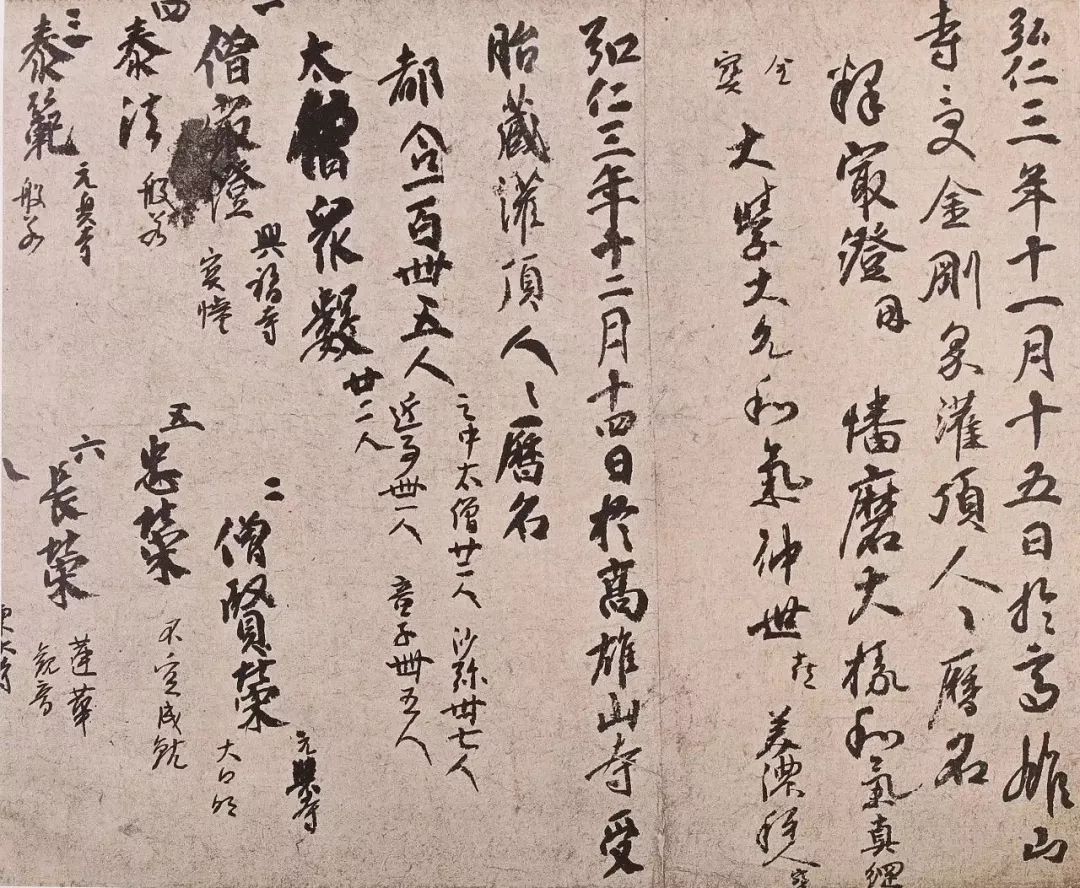 弘仁三年十一月十五日於高雄山
寺受金剛界灌頂人々暦名
釋㝡澄 因 播磨大掾和氣真綱
金
寶
大學大允和氣仲世 喜 美濃種人 寶
弘仁三年十二月十四日於高雄山寺受
胎藏灌頂人々暦名
都合一百卌五人
之中太僧廿二人 沙弥卅七人
近事卌一人 童子卌五人
太僧衆數 廿二人
一
僧㝡澄
興福寺
寶幢
二
僧賢榮
元興寺
大日
三
泰範
元興寺
般若
四
泰法
般若
五
忠榮
不空成就
六
長榮
蓮華
観音